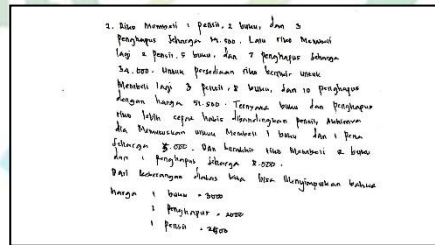 1. Riko Membeli 1 pensil, 2 buku, dan 3
penghapus seharga 14.500. Lalu riko Membeli
lagi 2 pensil, 5 buku, dan 7 penghapus seharga
34.000. Untuk persediaan riko berpikir untuk
Membeli lagi 3 pensil, 8 buku, dan 10 penghapus
dengan harga 51.500. Ternyata buku dan penghapus
riko lebih cepat habis dibandingkan pensil, Akhirnya
dia Memutuskan untuk Membeli 1 buku dan 1 pena
Seharga 5.000. Dan terakhir riko Membeli 2 buku
dan 1 penghapus seharga 8.000.
Dari keterangan diatas kita bisa Menyimpulkan bahwa
harga 1 buku = 3000
1 penghapus = 2000
1 pensil = 2500